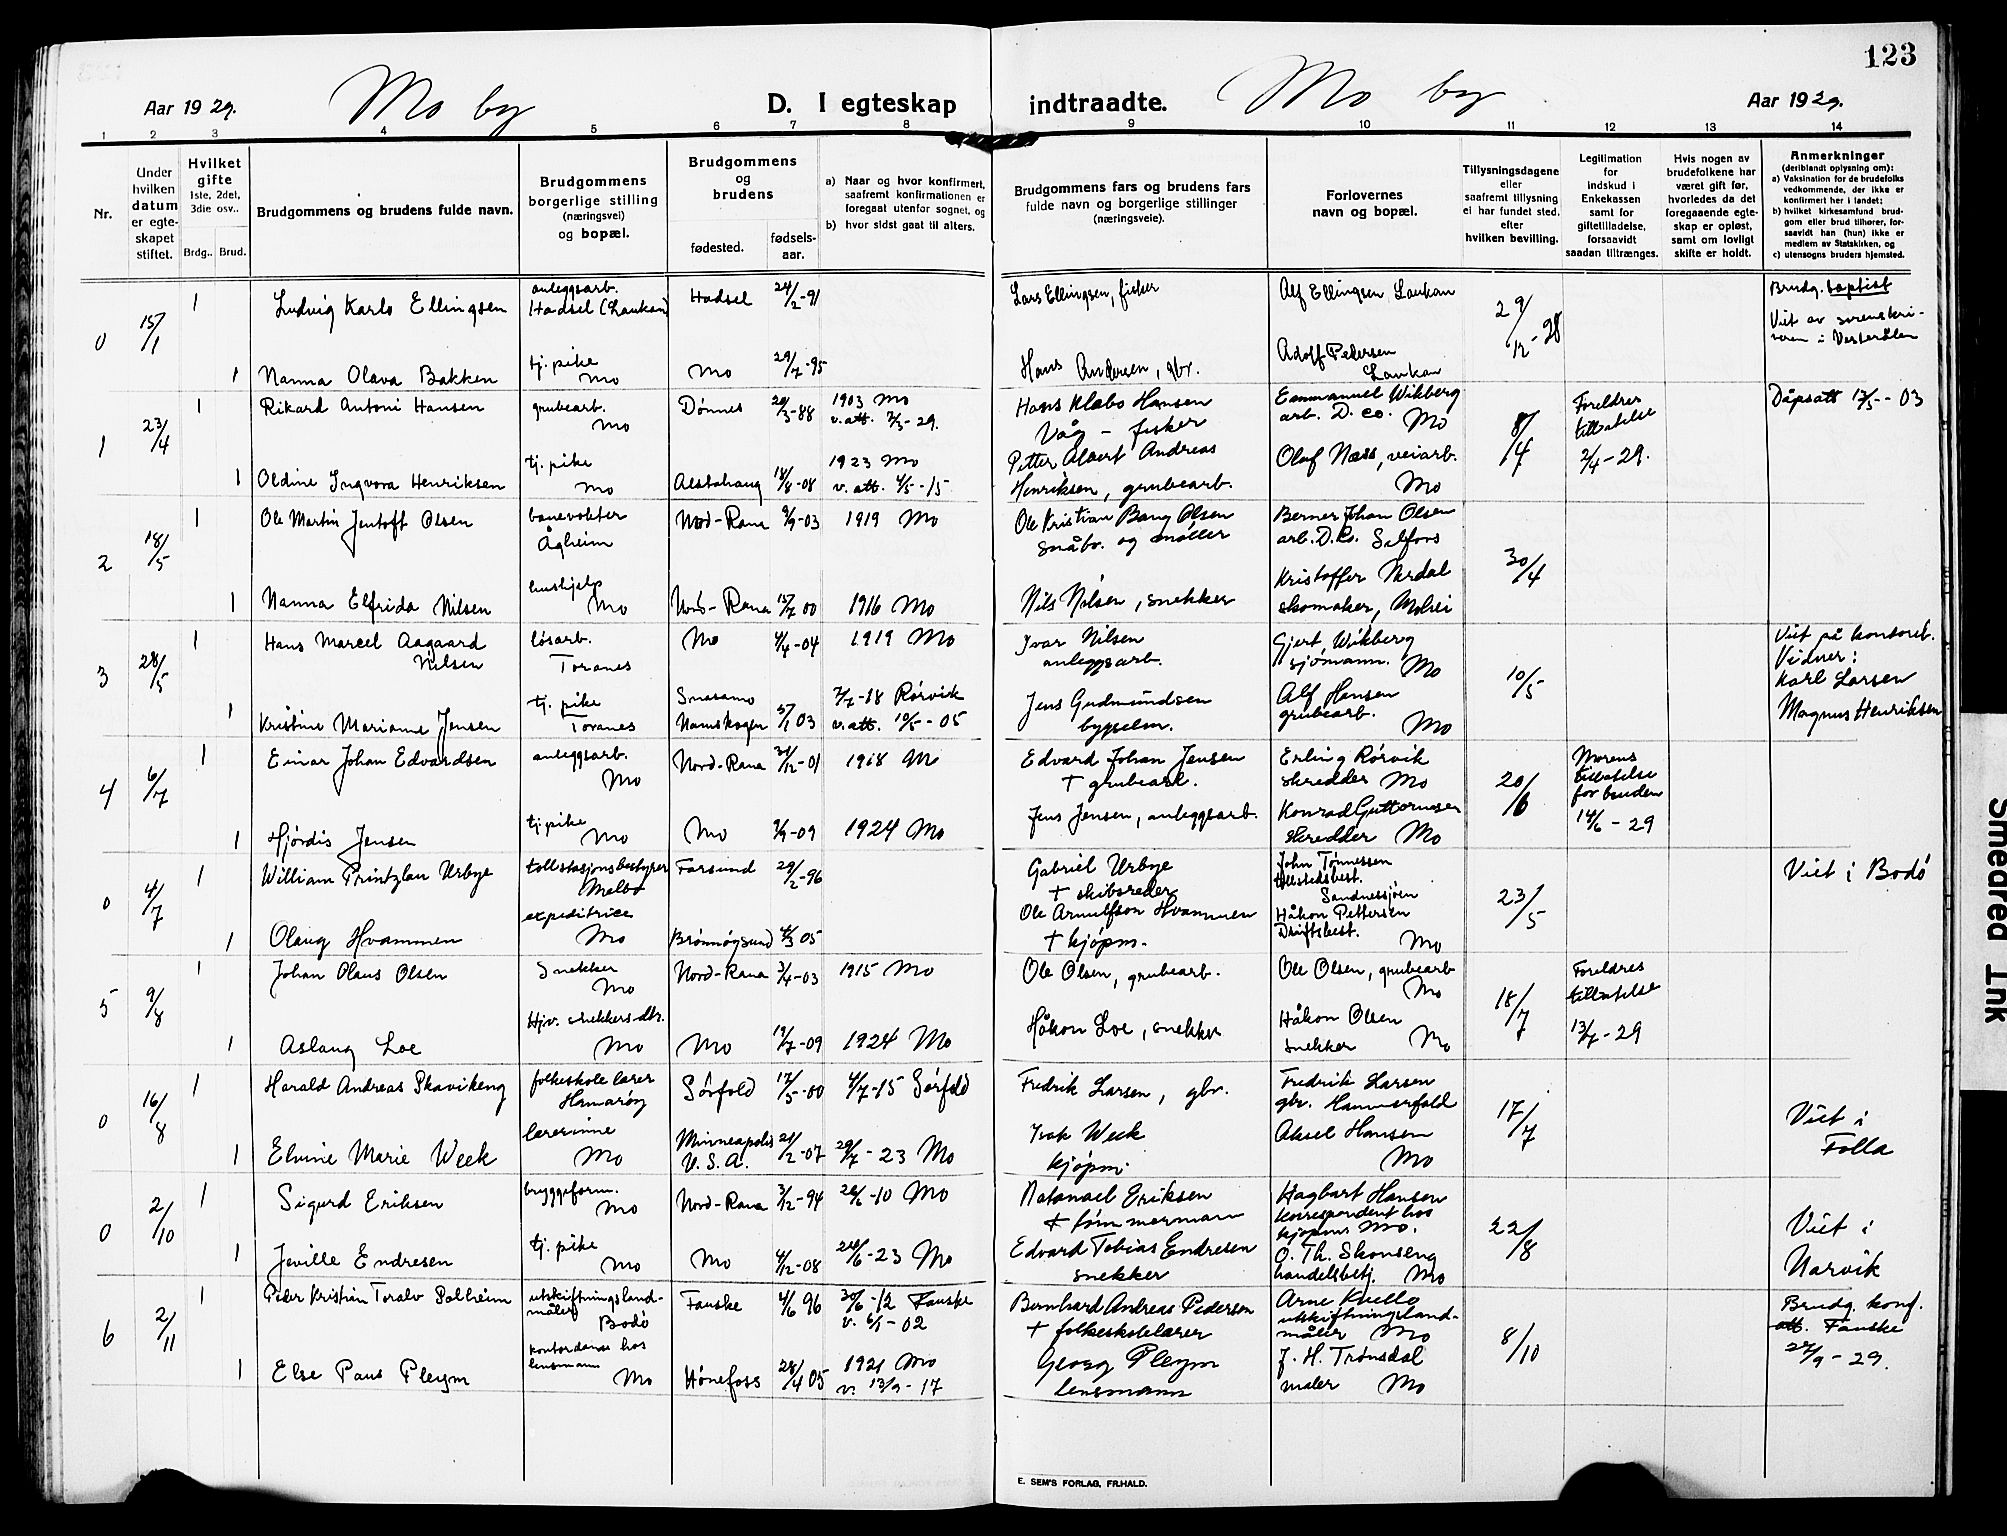 123
Aar 1929. Mo by D. I egteskap indtraadte. Mo by Aar 1929.
1 2 3 4 5 6 7 8 9 10 11 12 13 14
Nr.
Under hvilken datum er egteskapet stiftet.
Hvilket gifte
1ste, 2det, 3die osv..
Brdg.. Brud.
Brudgommens og brudens fulde navn.
Brudgommens borgerlige stilling (næringsvei) og bopæl.
Brudgommens og brudens
fødested.
fødsels-aar.
a) Naar og hvor konfirmert, saafremt konfirmationen er foregaat utenfor sognet, og
b) hvor sidst gaat til alters.
Brudgommens fars og brudens fars fulde navn og borgerlige stillinger (næringsveie).
Forlovernes navn og bopæl.
Tillysningsdagene eller saafremt tillysning ei har fundet sted, efter hvilken bevilling.
Legitimation for indskud i Enkekassen samt for giftetilladelse, forsaavidt saadan tiltrænges.
Hvis nogen av brudefolkene har været gift før, hvorledes da det foregaaende egteskap er opløst, samt om lovligt skifte er holdt.
Anmerkninger
(deriblandt oplysning om):
a) Vaksination for de brudefolks vedkommende, der ikke er konfirmert her i landet:
b) hvilket kirkesamfund brudgom eller brud tilhører, forsaavidt han (hun) ikke er medlem av Statskirken, og
c) utensogns bruders hjemsted.
0 15/1 1 Ludvig Karlo Ellingsen anleggsarb. Hadsel (Laukan) Hadsel 24/2-91 Lars Ellingsen, fisker Alf Ellingsen Laukan 29/12-28 Brudg. baptist
Viet av sorenskriveren i Vesterålen
1 Nanna Olava Bakken tj. pike Mo Mo 29/7-95 Hans Andersen, gbr. Adolf Pedersen Laukan
1 23/4 1 Rikard Antoni Hansen grubearb. Mo Dønnes 20/3-88 1903 Mo v. att. 7/3-29. Hans Klæbo Hansen Våg - fisker Emmanuel Wikberg arb. D. Co. Mo 8/4 Foreldres tillatelse 2/4-29. Dåpsatt 13/5-03
1 Oldine Ingvora Henriksen tj. pike Mo Alstahaug 18/8-08 1923 Mo v. att. 4/5-15 Petter Albert Andreas Henriksen, grubearb. Olaf Næss, veiarb. Mo
2 18/5 1 Ole Martin Jentoft Olsen banevokter Ågheim Nord-Rana 9/9-03 1919 Mo Ole Kristian Bang Olsen småbr. og møller Berner Johan Olsen arb. D. Co. Selfors 30/4
1 Nanna Elfrida Nilsen hushjelp Mo Nord-Rana 15/7 00 1916 Mo Nils Nilsen, snekker Kristoffer Nerdal skomaker, Molrei
3 28/5 1 Hans Marcel Aagaard Nilsen løsarb. Toranes Mo 4/4-04 1919 Mo Ivar Nilsen anleggsarb. Gjert Wikberg sjømann. Mo 10/5 Viet på kontoret. Vidner: Karl Larsen Magnus Henriksen
1 Kristine Marianne Jensen tj. pike Toranes Namskogen 5/1 03 7/7-18 Rørvik v. att. 10/5-05 Jens Gudmundsen Alf Hansen grubearb. Mo
4 6/7 1 Einar Johan Edvardsen anleggsarb. Mo Nord-Rana 31/12-01 1918 Mo Edvard Johan Jensen + grubearb. Erling Rørvik skredder Mo 20/6 Morens tillatelse for bruden 14/6-29
1 Hjørdis Jensen tj. pike Mo Mo 3/9-09 1924 Mo Jens Jensen, anleggsarb. Konrad Guttormsen skredder Mo
0 4/7 1 William Printzlau Urbye tollstasjonsbestyrer Melbo Farsund 29/2-96 Gabriel Urbye + skibsreder John Tønnessen tollstedsbest. Sandnessjøen 23/5 Viet i Bodø
1 Olaug Hvammen expeditrice Mo Brønnøysund 4/3 05 Ole Arnulfson Hvammen + kjøpm. Håkon Pettersen Driftsbest. Mo
5 9/8 1 Johan Olaus Olsen snekker Mo Nord-Rana 3/4-03 1915 Mo Ole Olsen, grubearb. Ole Olsen, grubearb Mo 18/7 Foreldres tillatelse 13/7-29
1 Aslaug Loe Hjv. snekkers dtr. Mo Mo 19/7-09 1924 Mo Håkon Loe, snekker Håkon Olsen snekker Mo
0 16/8 1 Harald Andreas Skavikeng folkeskolelærer Hamarøy Sørfold 17/5-00 4/7-15 Sørfold Fredrik Larsen, gbr. Fredrik Larsen gbr. Hammerfald 17/7 Viet i Folla
1 Elvine Marie Week lærerinne Mo Minneapolis U.S.A. 21/2-07 29/7-23 Mo Isak Week kjøpm. Aksel Hansen Mo
0 2/10 1 Sigurd Eriksen bryggeform. Mo Nord-Rana 3/12-94 26/6-10 Mo Natanael Eriksen + Hagbart Hansen korrespondent hos kjøpm. Mo. 22/8 Viet i Narvik
1 Jeville Endresen tj. pike Mo Mo 4/12-08 24/6-23 Mo Edvard Tobias Endresen snekker O. Th. Skonseng handelsbetj. Mo
6 2/11 1 Peder Kristian Toralv Solheim utskiftningslandmåler Bodø Fauske 4/6 96 30/6-12 Fauske v. 6/1-02 Bernhard Andreas Pedersen + folkeskolelærer Arne Kvello utskiftningslandmåler Mo 8/10 Brudg. konf. att. Fauske 27/9-29.
1 Else Paus Pleym kontordame hos lensmann Mo Hønefoss 28/4 05 1921 Mo v. 13/9-17 Georg Pleym lensmann J. H. Trønsdal maler Mo
E. SEM'S FORLAG, FR.HALD.
Smeared Ink